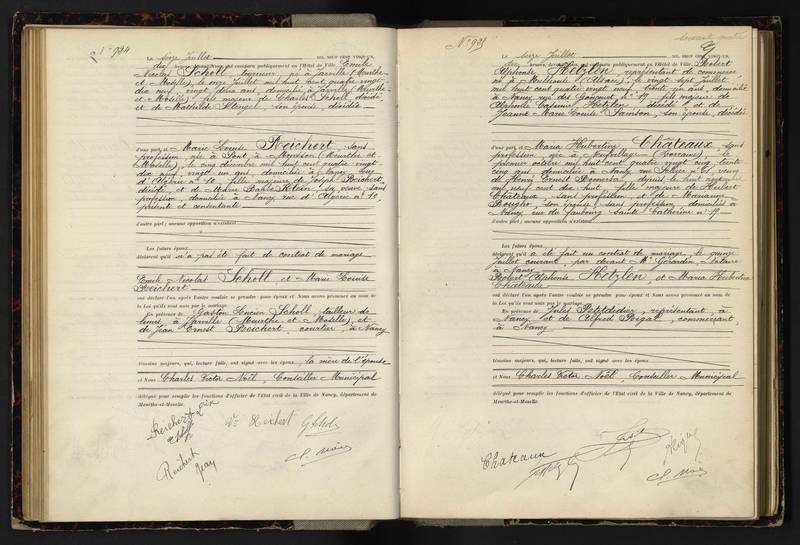 N° 934
Le onze Juillet mil neuf cent vingt un,
dix heures, ont comparu publiquement en l'Hôtel de Ville Emile
Nicolas Scholl, tourneur, né à Jarville (Meurthe
et Moselle), le onze Juillet mil huit cent quatre vingt
dix neuf, vingt deux ans, domicilié à Jarville (Meurthe
et Moselle), fils majeur de Charles Scholl, décédé,
et de Mathilde Stengel, son épouse, décédée
d'une part; et Marie Louise Reichert, sans
profession, née à Pont à Mousson (Meurthe et
Moselle), le cinq décembre mil huit cent quatre vingt
dix neuf, vingt un ans, domiciliée à Nancy, rue
d'Algérie n° 10, fille majeure de Joseph Reichert,
décédé, et de Marie Klein, sa veuve, sans
profession, domiciliée à Nancy, rue d'Algérie n° 10,
présente et consentante
d'autre part; aucune opposition n'existant
Les futurs époux
déclarent qu'il n'a pas été fait de contrat de mariage
Emile Nicolas Scholl et Marie Louise
Reichert
ont déclaré l'un après l'autre vouloir se prendre pour époux et Nous avons prononcé au nom de
la Loi qu'ils sont unis par le mariage.
En présence de Gaston Lucien Scholl, tailleur de
limes, à Jarville (Meurthe et Moselle), et
de Jean Ernest Reichert, courtier, à Nancy
témoins majeurs, qui, lecture faite, ont signé avec les époux, la mère de l'épouse
et Nous Charles Victor Noël, Conseiller Municipal
délégué pour remplir les fonctions d'officier de l'Etat civil de la Ville de Nancy, département de
Meurthe-et-Moselle.
Reichert
Reichert
Reichert
Jean
Ch. Noël
N° 935
Le onze Juillet mil neuf cent vingt un,
dix heures, ont comparu publiquement en l'Hôtel de Ville Robert
Alphonse Hetzlen, représentant de commerce
né à Mulhouse (Alsace), le vingt sept Juillet
mil huit cent quatre vingt neuf, trente un ans, domicilié
à Nancy, n° 17, fils majeur de
Alphonse Casimir Hetzlen, décédé, et de
Jeanne Marie Louise Samson, son épouse, décédée
d'une part; et Maria Hubertine Châteaux, sans
profession, née à Neufvillage (Lorraine), le
premier octobre mil huit cent quatre vingt cinq, trente
cinq ans, domiciliée à Nancy, n° 61, veuve
de Henri Ernest depuis le huit
mil neuf cent dix huit, fille majeure de Hubert
Châteaux, sans profession, et de Marianne
son épouse, sans profession, domiciliés à
Nancy, rue du faubourg Sainte Catherine n° 19
d'autre part; aucune opposition n'existant
Les futurs époux
déclarent qu'il a été fait un contrat de mariage, le quinze
Juillet courant, par devant Me Gérardin, Notaire
à Nancy
Robert Alphonse Hetzlen, et Maria Hubertine
Châteaux
ont déclaré l'un après l'autre vouloir se prendre pour époux et Nous avons prononcé au nom de
la Loi qu'ils sont unis par le mariage.
En présence de Jules Petitdidier, représentant, à
Nancy, et de Alfred commerçant,
à Nancy
témoins majeurs, qui, lecture faite, ont signé avec les époux
et Nous Charles Victor Noël, Conseiller Municipal
délégué pour remplir les fonctions d'officier de l'Etat civil de la Ville de Nancy, département de
Meurthe-et-Moselle.
Chateaux
Ch. Noël